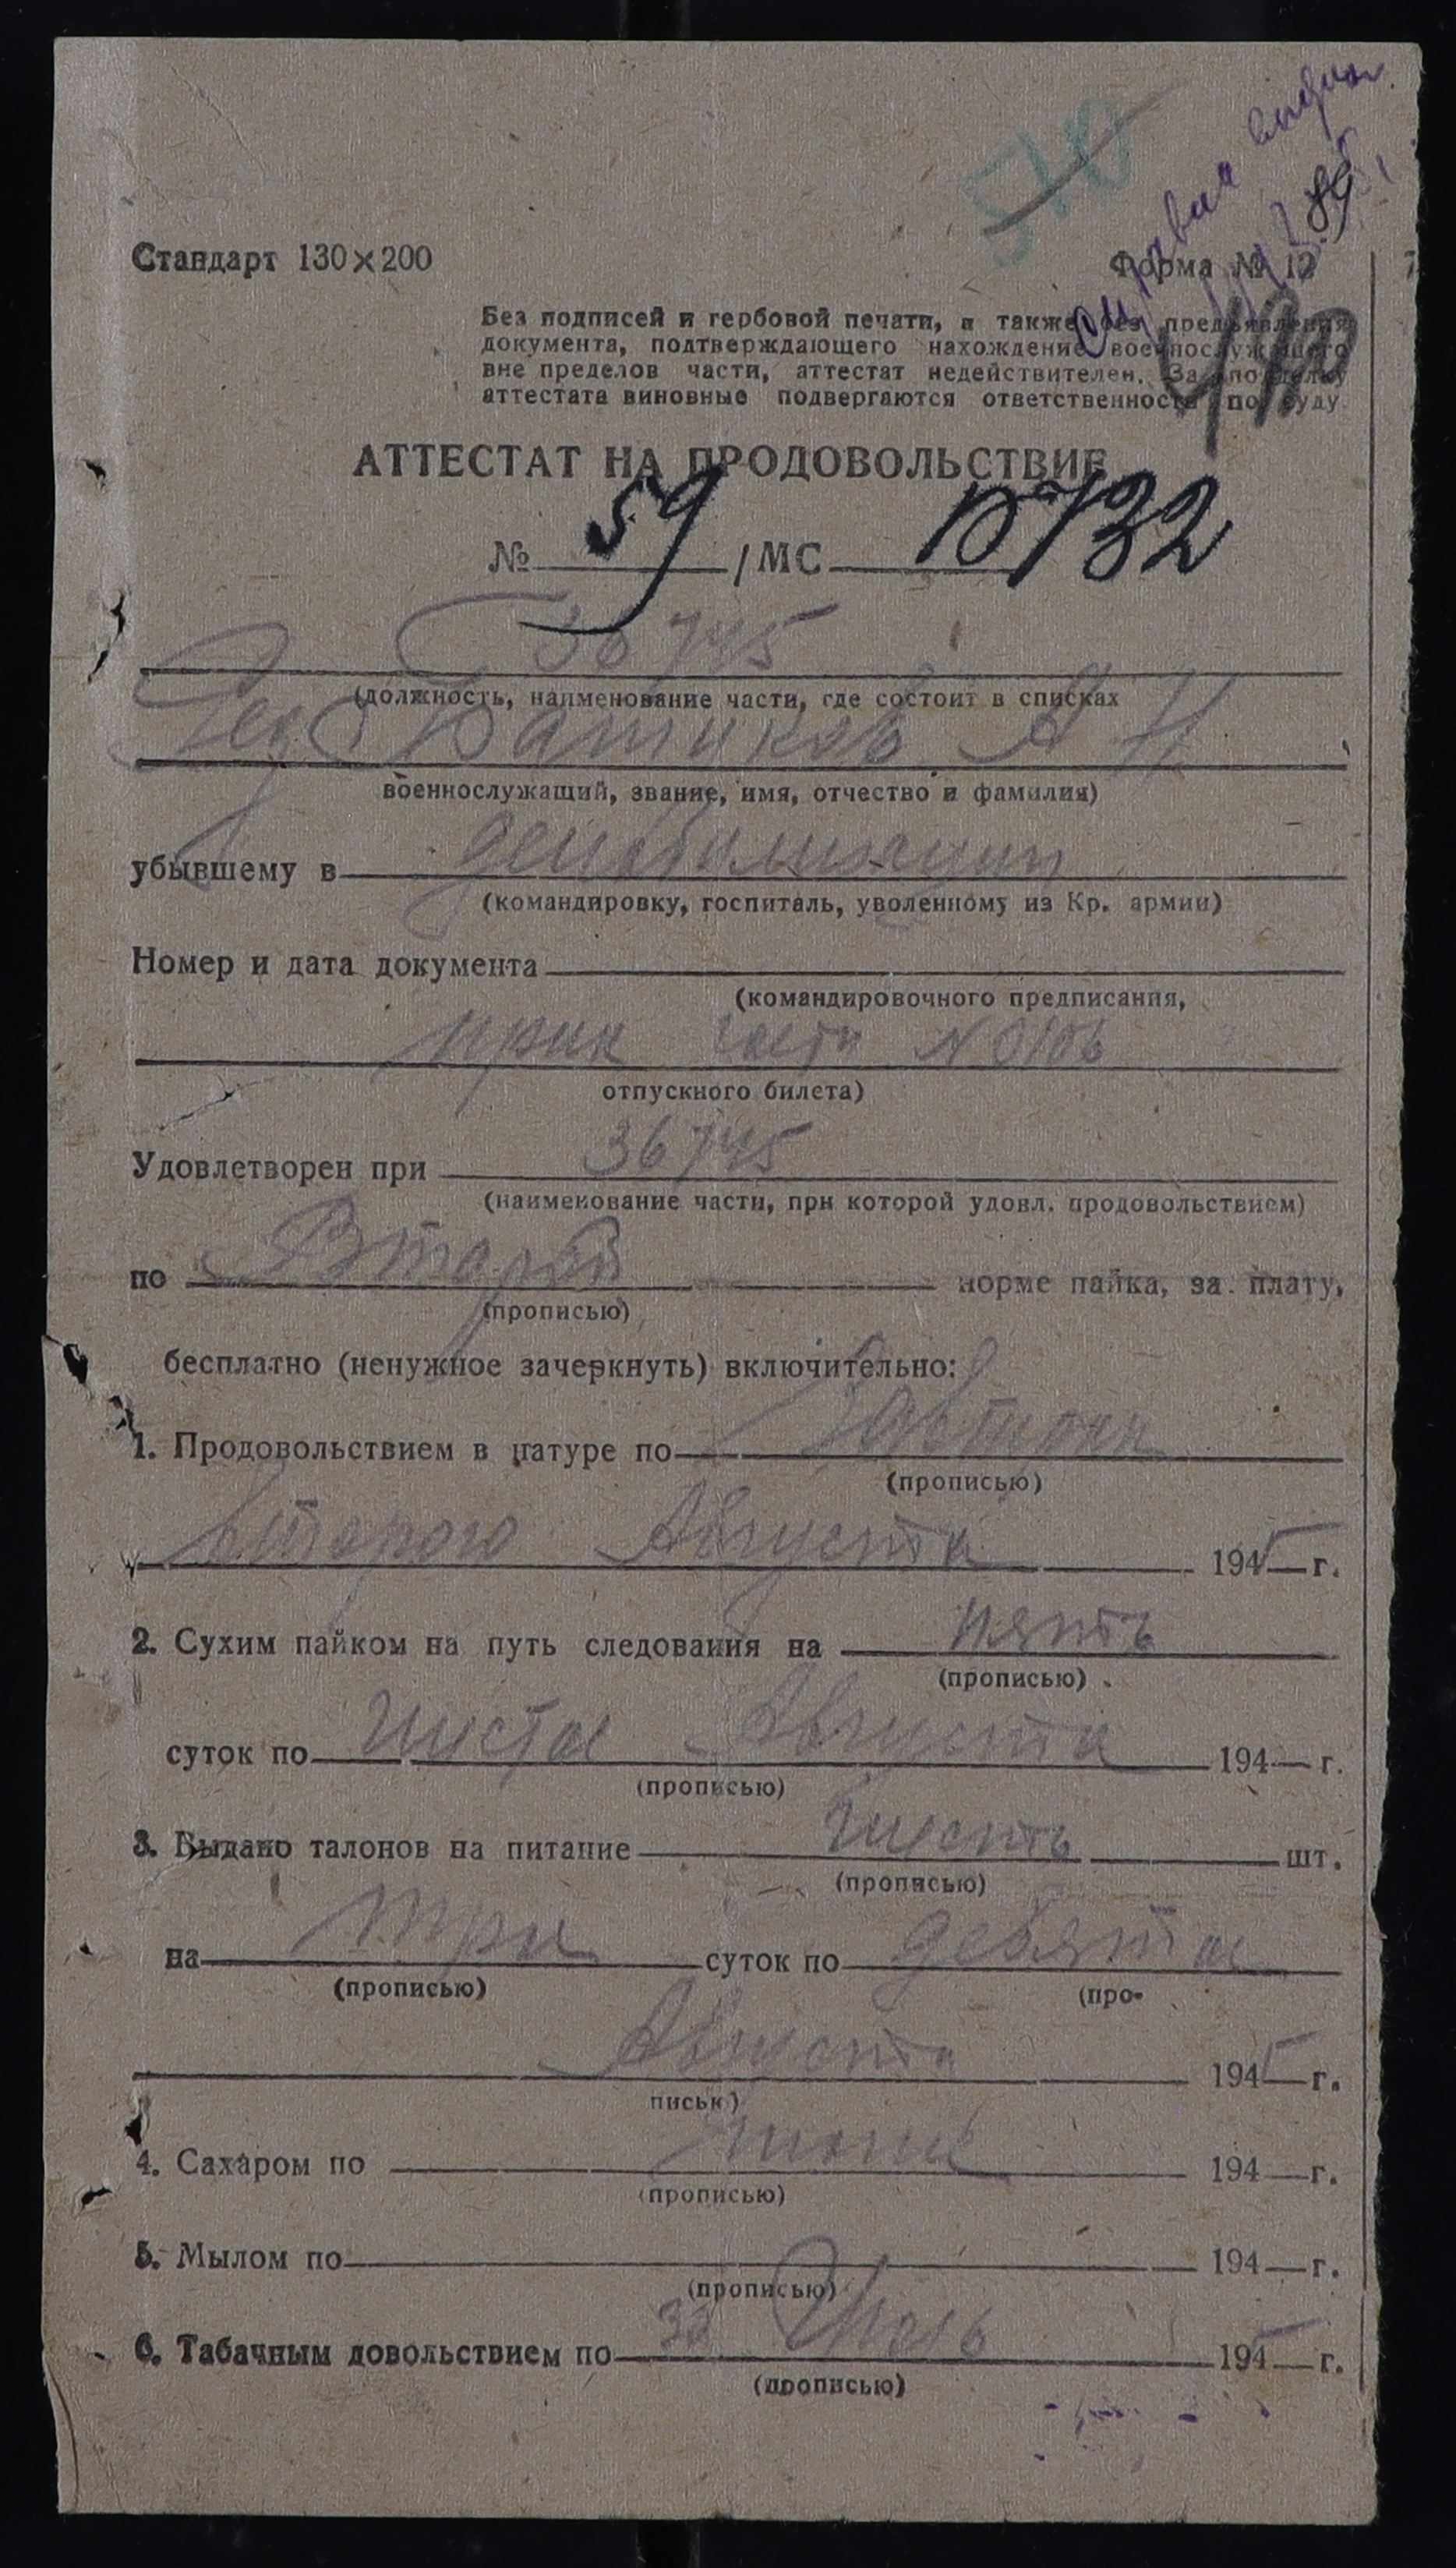 570
89
Стандарт 130×200
Форма № 12
Без подписей и гербовой печати, а также без предъявления
документа, подтверждающего нахождение военнослужащего
вне пределов части, аттестат недействителен. За подделку
аттестата виновные подвергаются ответственности по суду.
АТТЕСТАТ НА ПРОДОВОЛЬСТВИЕ
№ 59 /МС
36745
(должность, наименование части, где состоит в списках
Батиков А Н
военнослужащий, звание, имя, отчество и фамилия)
убывшему в
(командировку, госпиталь, уволенному из Кр. армии)
Номер и дата документа
(командировочного предписания,
прик части № 0106
отпускного билета)
Удовлетворен при 36745
(наименование части, при которой удовл. продовольствием)
по Второй норме пайка, за плату,
(прописью)
бесплатно (ненужное зачеркнуть) включительно:
1. Продовольствием в натуре по Завтрак
(прописью)
второго Августа 1945 г.
2. Сухим пайком на путь следования на пять
(прописью)
суток по шесто Августа 194 г.
(прописью)
3. Выдано талонов на питание шесть шт.
(прописью)
на три суток по девятое
(прописью) (про-
Августа 1945 г.
писью)
4. Сахаром по 194 г.
(прописью)
5. Мылом по 194 г.
(прописью)
6. Табачным довольствием по Июль 1945 г.
(прописью)